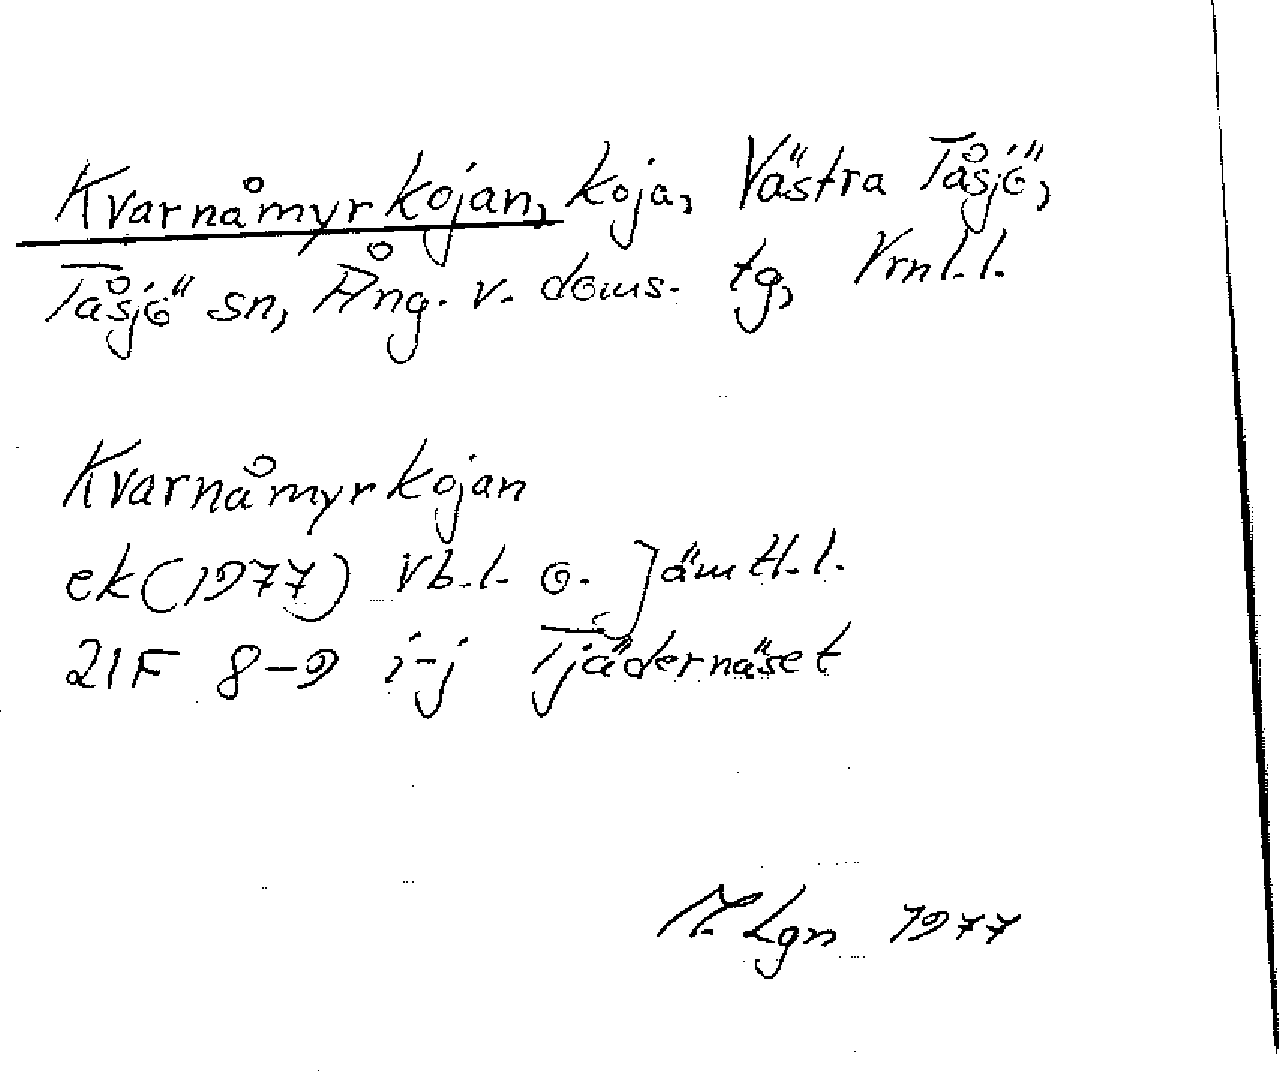 Kvarnåmyrkojan, koja, Västra Tåsjö,
Tåsjö sn, Ång. v. doms. tg, Vrnl.l.
Kvarnåmyrkojan
ek (1977) Vb.l. o. Jämtl.l.
21F 8-9 i-j Tjädernäset
Lgn 1977